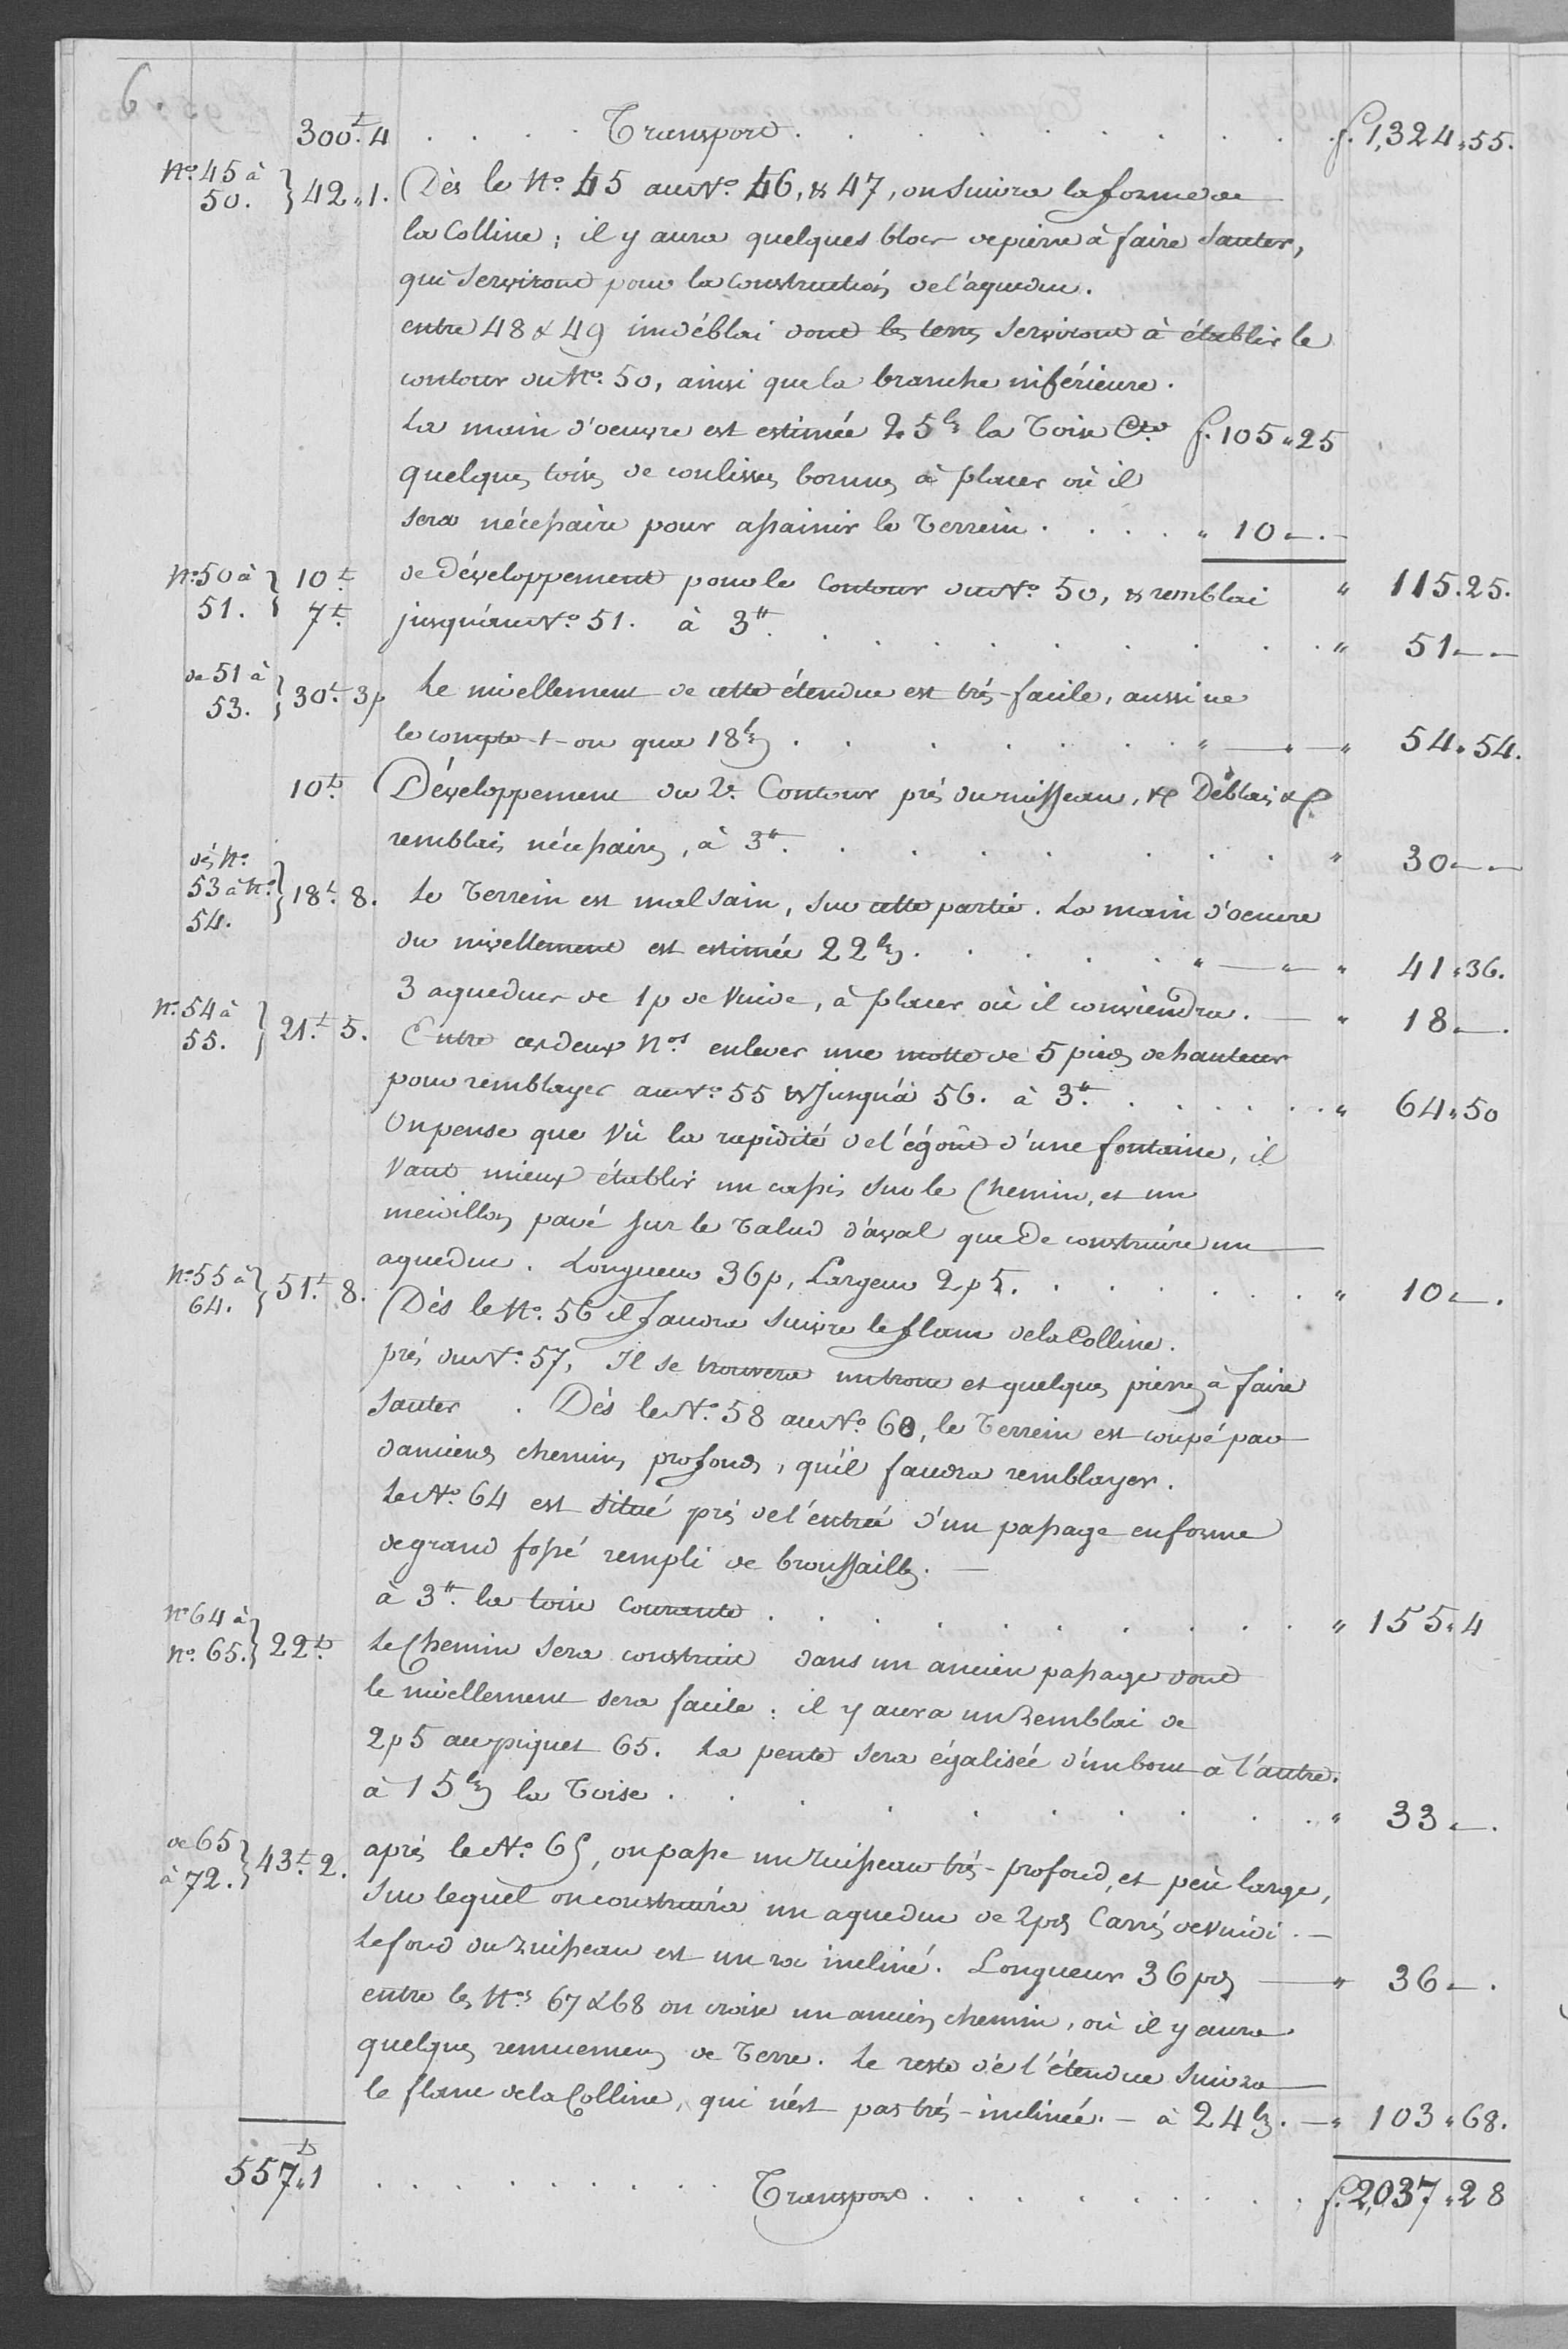 6.
300.t 4 . . . . Transport . . . . . . . . . f. 1,324 „ 55.
No. 45 à 50. } 42 „ 1. Dès le No. 45 au No. 46, & 47, on suivra la forme de
la Colline ; il y aura quelques blocs de pierre à faire sauter,
qui serviront pour la construction de l'aqueduc.
entre 48 & 49 un déblai dont les terres serviront à établir le
contour du No. 50, ainsi que la branche inférieure.
La main d'oeuvre est estimée 25 bz la Toise Cte f. 105 „ 25
quelques toises de coulisses bornus à placer où il
sera nécessaire pour assainir le Terrein . . . . „ 10 „ - . -
No. 50 à 51. } 10.t de Développement pour le Contour du No. 50, & remblai „ 115 . 25.
7.t jusqu'au No. 51. à 3 tt. . . . . . . . . „ 51 - -
de 51 à 53. } 30.t 3p Le nivellement de cette étendue est très-facile, aussi ne
le compte-t-on que 18 bz . . . . . . „ — „ — „ 54 „ 54.
10.t Développement du 2e. Contour près du ruisseau, & Déblais &
remblais nécessaires, à 3 tt. . . . . . . . . „ 30 - -
dès No. 53 à No. 54. } 18.t 8. Le Terrein est mal sain, sur cette partie. La main d'oeuvre
du nivellement est estimée 22 bz . . . . . „ — „ — „ 41 „ 36.
3 aqueducs de 1p de Vuide, à placer où il conviendra. — „ 18 „ - .
No. 54 à 55. } 21.t 5. Entre ces deux Nos. enlever une motte de 5 pieds de hauteur
pour remblayer au No. 55 & jusqu'à 56. à 3 tt. . . . . . . „ 64 „ 50
On pense que vù la rapidité de l'égoût d'une fontaine, il
vaut mieux établir un cassis sur le Chemin, et un
meivillon pavé sur le Talud d'aval que de construire un
aqueduc. Longueur 36p, Largeur 2p 5. . . . . . . „ 10 „ - .
No. 55 à 64. } 51.t 8. Dès le No. 56 il faudra suivre le flanc de la Colline.
près du No. 57, Il se trouvera un tronc et quelques pierres à faire
sauter . Dès le No. 58 au No. 60, le Terrein est coupé par
d'anciens chemins profonds, qu'il faudra remblayer.
Le No. 64 est situé près de l'entrée d'un passage en forme
de grand fossé rempli de broussailles. —
à 3 tt. la toise courante . . . . . . . . . „ 155 „ 4
No. 64 à No. 65. } 22.t Le Chemin sera construit dans un ancien passage dont
le nivellement sera facile : il y aura un Remblai de
2p 5 au piquet 65. La pente sera égalisée d'un bout à l'autre.
à 15 bz la Toise . . . . . . . . . „ 33 „ - .
de 65 à 72. } 43.t 2. après le No. 65, on passe un Ruisseau très-profond, et peu large,
sur lequel on construira un aqueduc de 2pds Carrés de Vuide. —
Le fond du Ruisseau est un roc incliné. Longueur 36 pds — „ 36 „ - .
entre les Nos. 67 & 68 on croise un ancien chemin, où il y aura
quelques remuemens de Terre. Le reste de l'étendue suivra
le flanc de la Colline, qui n'est pas très-inclinée. - à 24 bz. — „ 103 „ 68.
557.t 1 . . . . . . . . . Transport . . . . . . . . . f. 2,037 „ 28